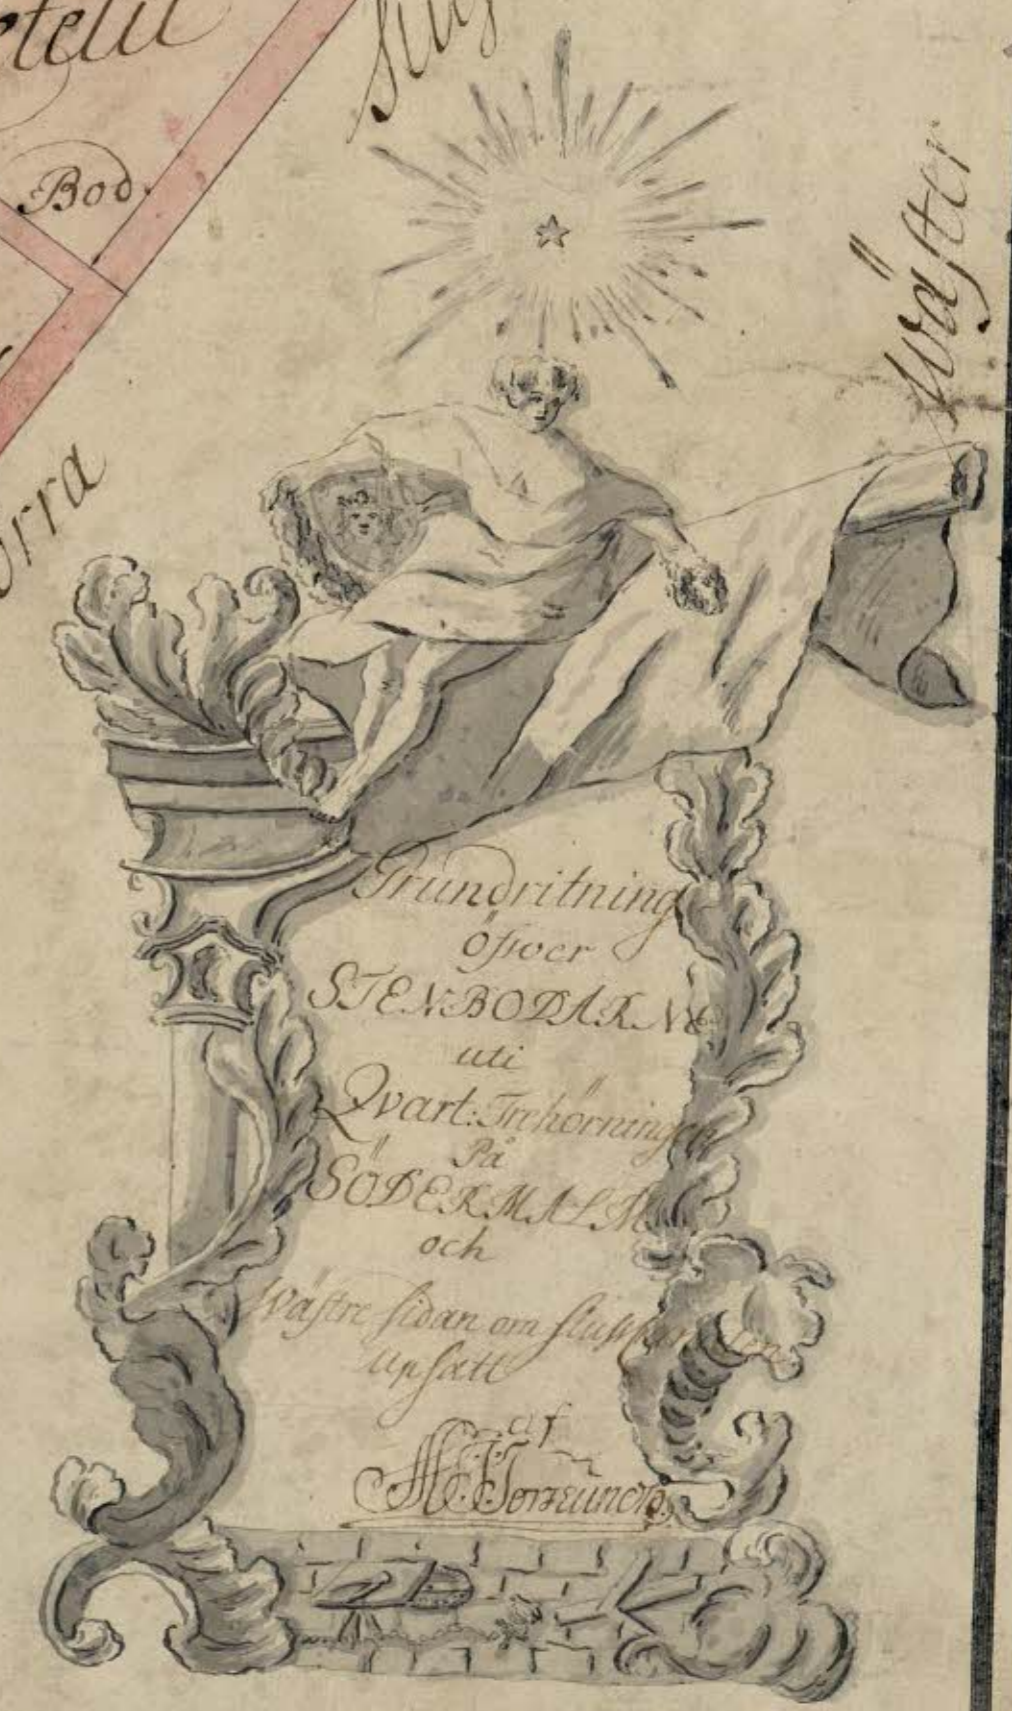 Bod.
Wäster
Grundritning
öfwer
STENBODARNE
uti
Qvart: Trehörningen
På
SÖDERMALM
och
Wästre sidan om
upsatt
af